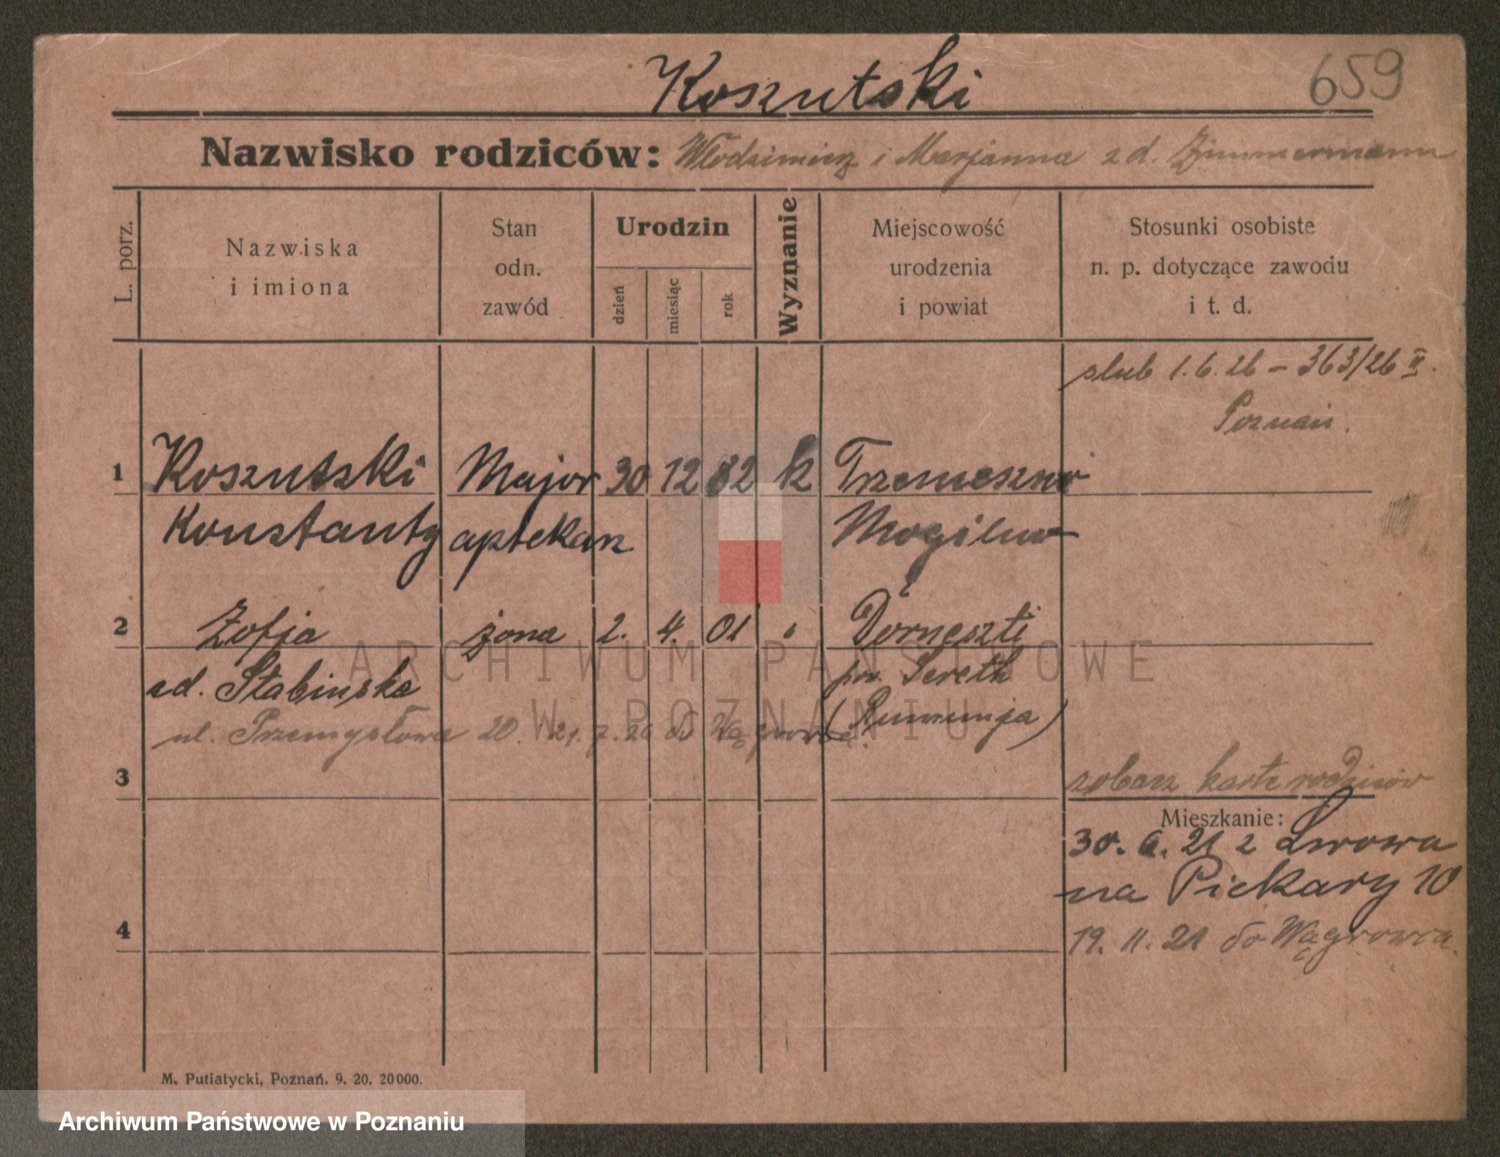 Koszutski
659
Nazwisko rodziców: Włodzimierz i Marjanna z d. Zimmermann
L. porz.
Nazwiska
i imiona
Stan
odn.
zawód
Urodzin
dzień
miesiąc
rok
Wyznanie
Miejscowość
urodzenia
i powiat
Stosunki osobiste
n. p. dotyczące zawodu
i t. d.
ślub 1.6.26 – 363/26 II.
Poznań.
1 Koszutski Major 30 12 82 k Trzemeszno
Konstanty aptekarz Mogilno
2 Zofja żona 2. 4. 01 " Dorneszti
zd. Słabińska pow. Sereth
(Rumunja)
ul. Przemysłowa 20. 21.7.26 do Wągrowca.
3
zobacz kartę rodziców
Mieszkanie:
30. 6. 21 z Lwowa
na Piekary 10
4
19. 11. 21 do Wągrowca.
M. Putiatycki, Poznań. 9. 20. 20000.
ARCHIWUM PAŃSTWOWE
W POZNANIU
Archiwum Państwowe w Poznaniu